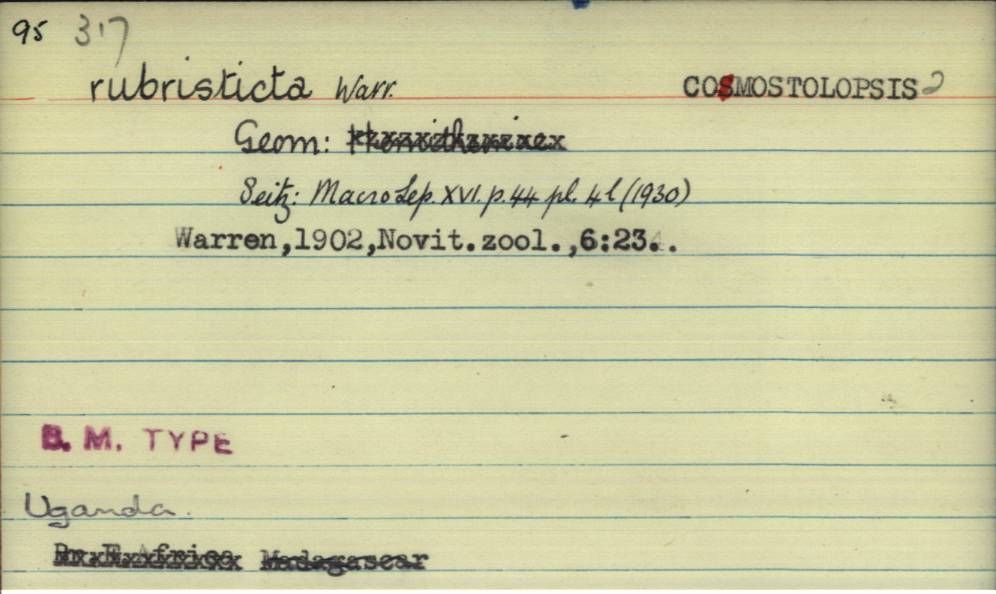 95 317
rubristicta Warr. COSMOSTOLOPSIS 2
Geom: Hemitheinae
Seitz: MacroLep. XVI. p. 44 pl. 4 l (1930)
Warren,1902,Novit.zool.,6:23..
B. M. TYPE
Uganda.
Br. E. Africa Madagascar